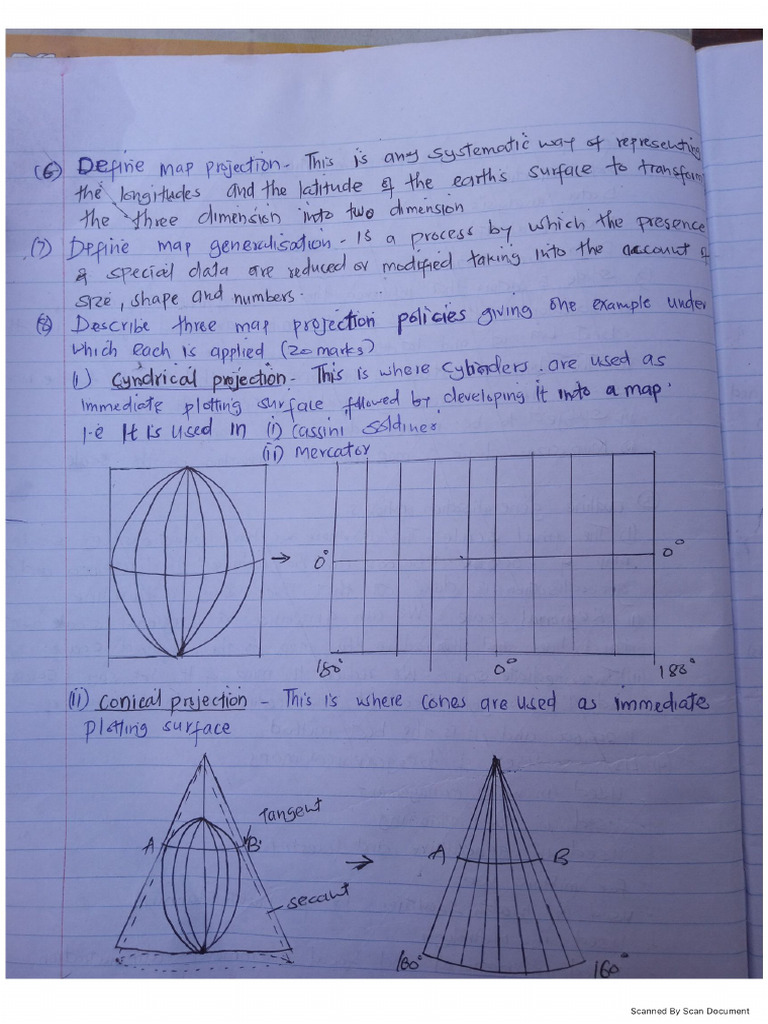 (6) Define map projection - This is any systematic way of representing
the longitudes and the latitude of the earth's surface to transform
the three dimension into two dimension
(7) Define map generalisation - Is a process by which the presence
of special data are reduced or modified taking into the account of
size, shape and numbers.
(8) Describe three map projection policies giving one example under
which each is applied (20 marks)
(i) Cyndrical projection - This is where Cylinders are used as
immediate plotting surface followed by developing it into a map.
i.e It is used in (i) Cassini Soldiner
(ii) Mercator
0° 0°
180° 0° 180°
(ii) Conical projection - This is where cones are used as immediate
plotting surface
Tangent
A B
A B
secant
180° 160°
Scanned By Scan Document